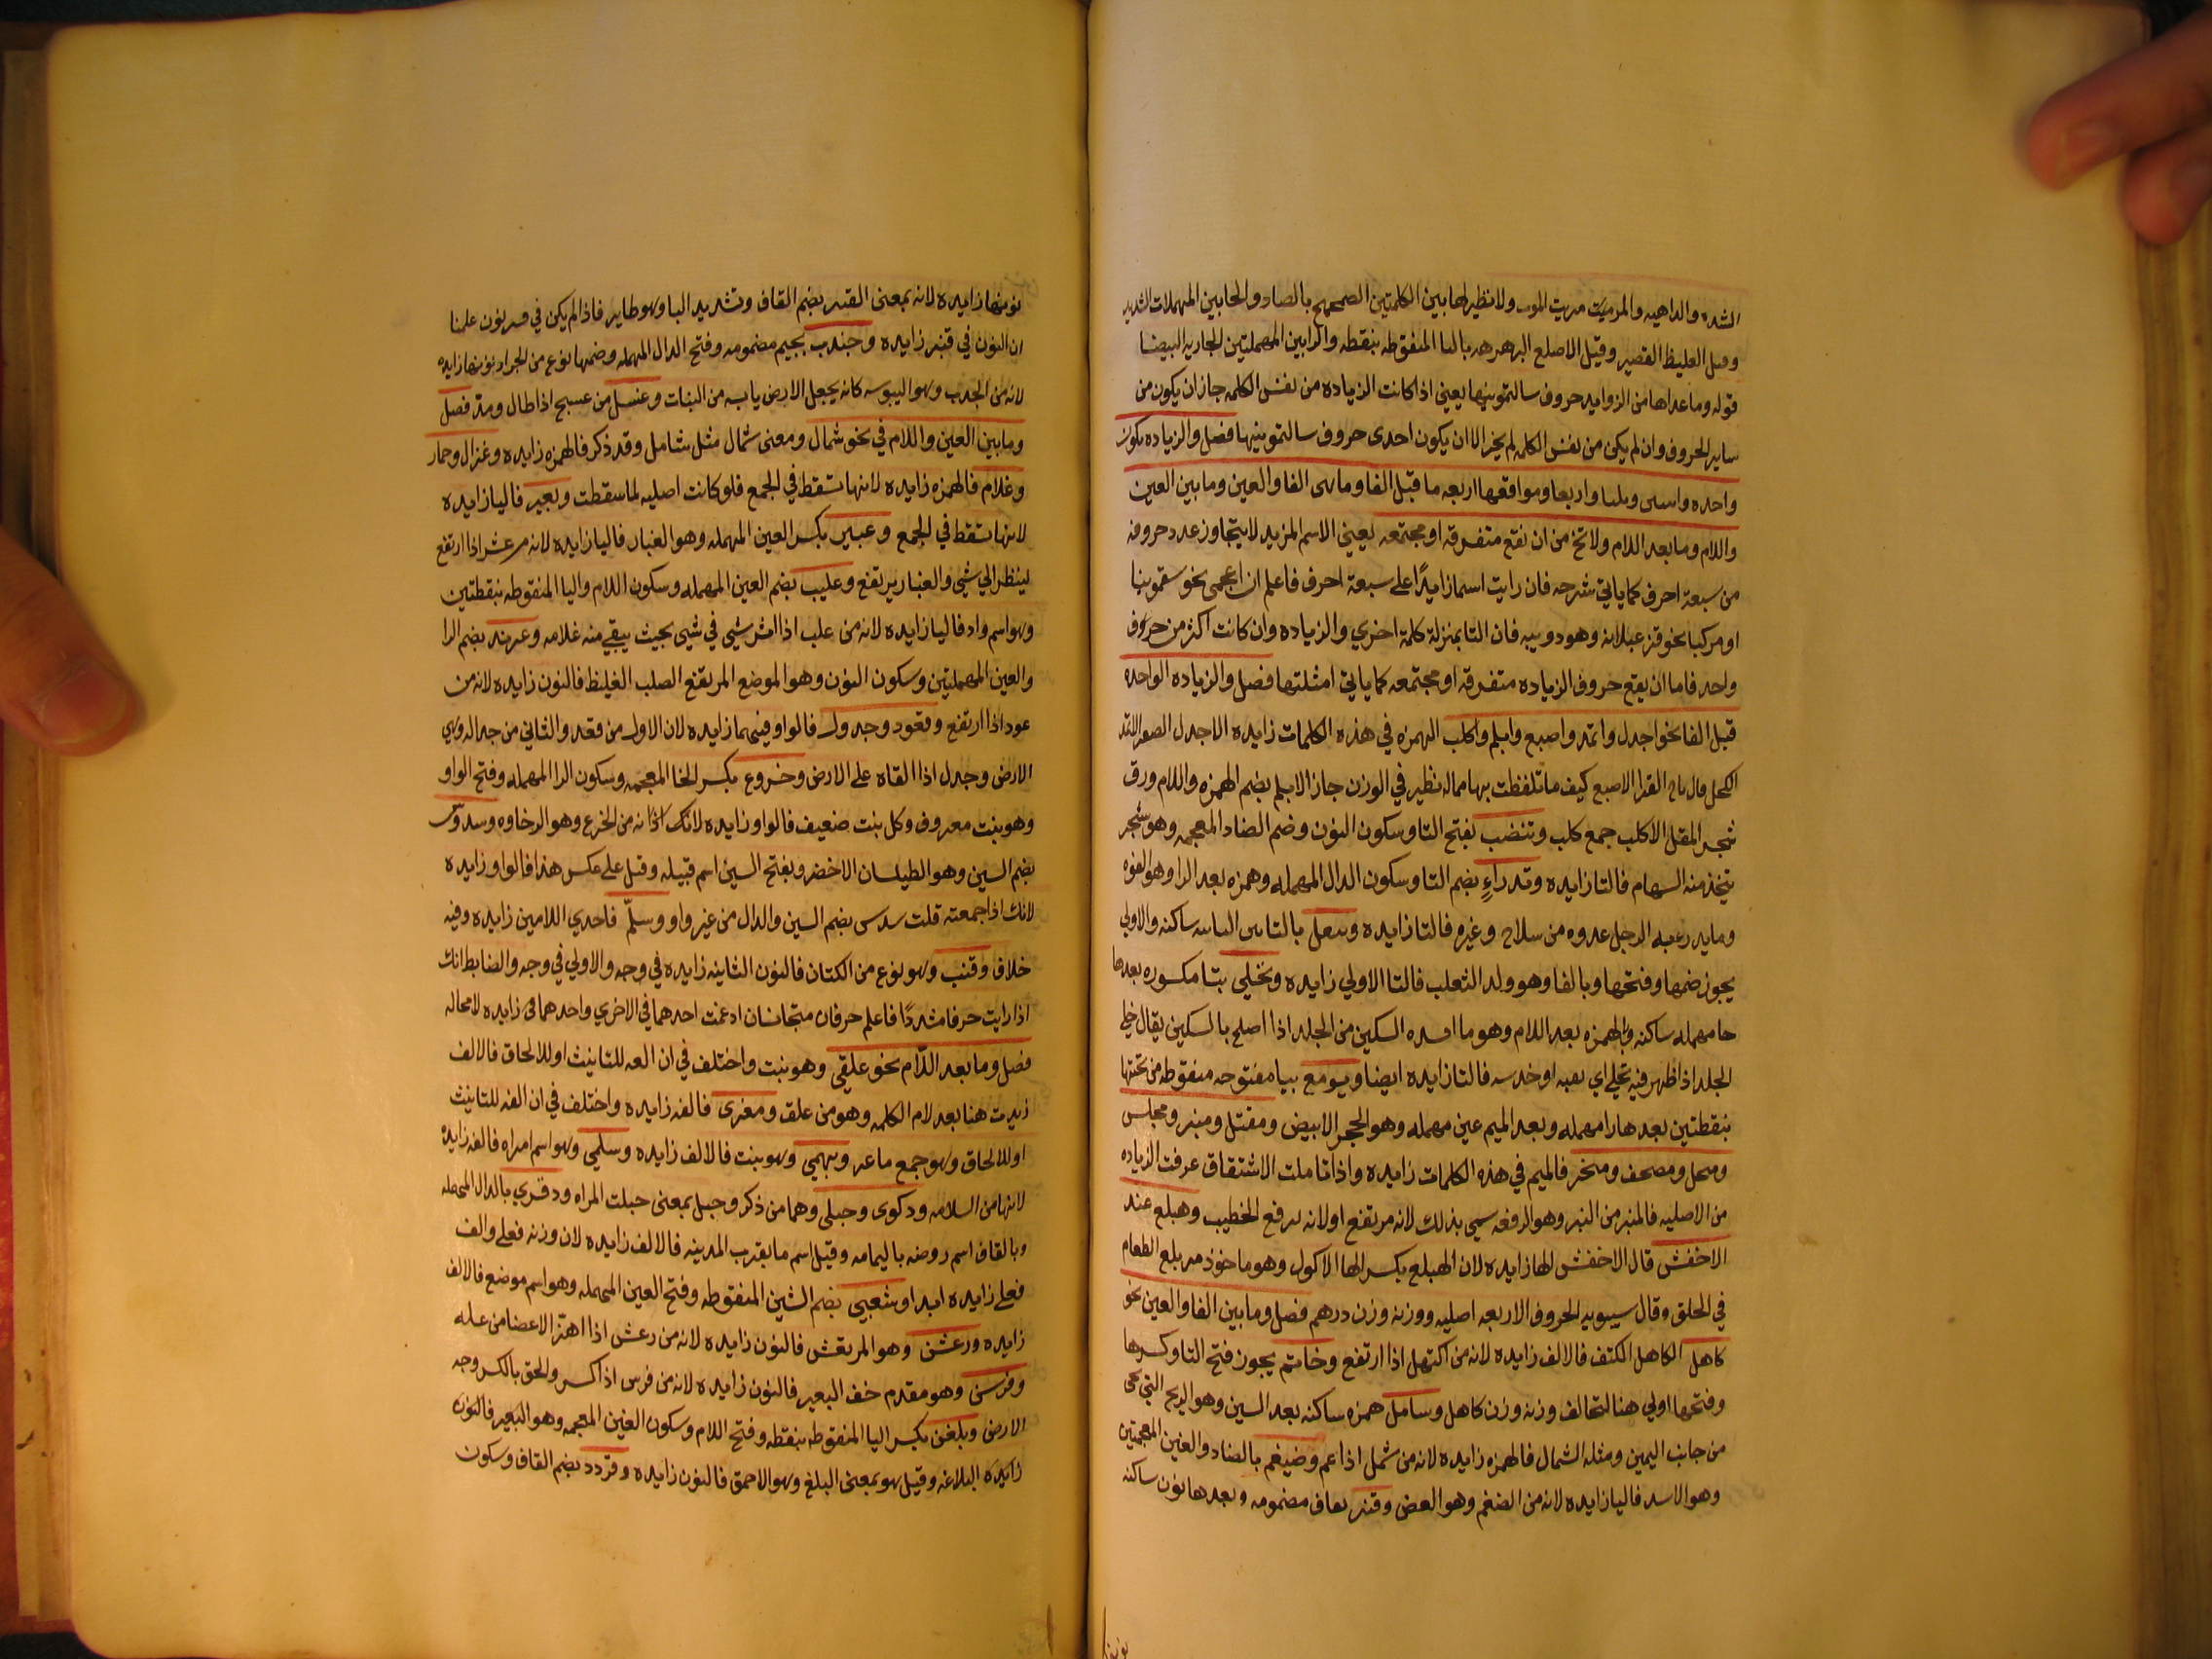 الشده والداهيه والمرمريت مريت الموت ولا نظير لها بين الكلمتين الصمحمح بالصاد والحابين المهملات الشديد
وقيل الغليظ القصير وقيل الاصلع البرهرهه بالبا المنقوطه بنقطه والرابين المهملتين الجاريه البيضا
قوله وما عداها من الزوايد حروف سالتمونيها يعني اذا كانت الزياده من نفس الكلمه جاز ان يكون من
ساير الحروف وان لم يكن من نفس الكلمه لم يخز الا ان يكون احدى حروف سالتمونيها فصل والزياده يكون
واحده واسىں وىلىا واربعا ومواقعها اربعه ما قبل الفا وما بىں الفا والعين وما بين العين
واللام وما بعد اللام ولا تخ من ان تقع متفرقه او مجتمعه يعني الاسم المزيد لا يتجاوز عدد حروفه
من سبعة احرف كما ياتي شرحه فان رايت اسما زايدًا على سبعة احرف فاعلم ان اعجمى نحو سقموىىا
او مركبا نحو قرعبلانه وهو دويبه فان التا بمنزلة كلمة اخري والزياده وان كانت اكثر من حروف
واحد فاما ان يقع حروف الزياده متفرقه او مجتمعه كما ياتي امثلتها فصل والزياده الواحده
قبل الفا نحو اجدل واثمد واصبع وابلم واكلب الهمزه في هذه الكلمات زايده الاجدل الصقر الاثمد
الكحل قال تاج القرا الاصبع كيف ما تلفظت بها مما له نظير في الوزن جاز الابلم بضم الهمزه واللام ورق
شجر المقل الاكلب جمع كلب وتنضب بفتح التا وسكون النون وضم الضاد المعجمه وهو شجر
يتخذ منه السهام فالتا زايده وتدراءٍ بضم التا وسكون الدال المهمله وهمزه بعد الرا وهو القوه
وما يدرء به الرجل عدوه من سلاح وغيره فالتا زايده وتتفل بالتا الثانيه ساكنه والاولي
يجوز ضمها وفتحها وبالفا وهو ولد الثعلب فالتا الاولي زايده وتحلي بتا مكسوره بعدها
حا مهمله ساكنه وبالهمزه بعد اللام وهو ما افسده السكين من الجلد اذا اصلح بالسكين يقال حلي
الجلد اذا ظهر فيه تحلي اي نقبه او خدسه فالتا زايده ايضا ويرمع بيا مفتوحه منقوطه من تحتها
بنقطتين بعدها را مهمله وبعد الميم عين مهمله وهو الحجر الابيض ومقتل ومنبر ومجلس
ومنخل ومصحف ومنخر فالميم في هذه الكلمات زايده واذا تاملت الاشتقاق عرفت الزياده
من الاصليه فالمنبر من النبر وهو الرفعه سمي بذلك لانه مرتفع او لانه يرفع الخطيب وهبلع عند
الاخفش قال الاخفش الها زايده لان الهبلع بكسر الها الاكول وهو ماخوذ من بلع الطعام
في الحلق وقال سيبويه الحروف الاربعه اصليه ووزنه وزن درهم فصل وما بين الفا والعين نحو
كاهل الكاهل الكتف فالالف زايده لانه من اكتهل اذا ارتفع وخاتم يجوز فتح التا وكسرها
وفتحها اولي هنا لتخالف وزنه وزن كاهل وشامل همزه ساكنه بعد السين وهو الريح التي تجى
من جانب اليمين ومثله الشمال فالهمزه زايده لانه من شمل اذا عم وضيغم بالضاد والغين المعجمتين
وهو الاسد فاليا زايده لانه من الضغم وهو العض وقنبر بقاف مضمومه وبعدها نون ساكنه
نونها
نونها زايده لانه بمعنى القبر بضم القاف وتشديد البا وهو طاير فاذا لم يكن في قبر نون علمنا
ان النون في قنبر زايده وجندب بجيم مضمومه وفتح الدال المهمله وضمها نوع من الجراد نونها زايده
لانه من الجدب وهو اليبوسه كانه يجعل الارض يابسه من النبات وعنسل من عسج اذا طال ومد فصل
وما بين العين واللام في نحو شمال ومعنى شمال مثل شامل وقد ذكر فالهمزه زايده وغزال وحمار
وغلام فالهمزه زايده لانها تسقط في الجمع فلو كانت اصليه لما سقطت وبعير فاليا زايده
لانها تسقط في الجمع وعبير بكسر العين المهمله وهو الغبار فاليا زايده لانه من عثر اذا ارتفع
لينظر الي شي والغبار يرتفع وعليب بضم العين المهمله وسكون اللام واليا المنقوطه بنقطتين
وهو اسم واد فاليا زايده لانه من علب اذا اثر شي في شي بحيث يبقي منه علامه وعرند بضم الرا
والعين المهملتين وسكون النون وهو الموضع المرتفع الصلب الغليظ فالنون زايده لانه من
عود اذا ارتفع وقعود وجدول فالواو فيهما زايده لان الاول من قعد والثاني من جداله وهي
الارض وجدل اذا القاه على الارض وخروع بكسر الخا المعجمه وسكون الرا المهمله وفتح الواو
وهو نبت معروف وكل نبت ضعيف فالواو زايده لانك اذا نه من الخرع وهو الرخاوه وسدوس
بضم السين وهو الطيلسان الاخضر وبفتح السين اسم قبيله وقيل على عكس هذا فالواو زايده
لانك اذا جمعته قلت سدس بضم السين والدال من غير واو وسلّم فاحدي اللامين زايده وفيه
خلاف وقنب وهو نوع من الكتان فالنون الثانيه زايده في وجه والاولي في وجه والضابط انك
اذا رايت حرفا مشددًا فاعلم حرفان متجانسان ادغمت احدهما في الاخري واحدهما في زايده لا محاله
فصل وما بعد اللّام نحو علقي وهو نبت واختلف في ان الفه للتانيث او للالحاق فالالف
زيدت هنا بعد لام الكلمه وهو من علق ومعزى فالفه زايده واختلف في ان الفه للتانيث
او للالحاق وهو جمع ماعز وبهمي وهو نبت فالالف زايده وسلمي وهو اسم امراه فالفه زايده
لانها من السلامه وذكوى وحبلي وهما من ذكر وحبل بمعنى حبلت المراه ودقري بالدال المهمله
وبالقاف اسم روضه باليمامه وقيل اسم ما بقرب المدينه فالالف زايده لان وزنه فعلي والف
فعلي زايده ابدا وشعبي بضم الشين المنقوطه وفتح العين المهمله وهو اسم موضع فالالف
زايده ورعشن وهو المرتعش فالنون زايده لانه من رعش اذا اهتز الاعضا من عله
وفرسن وهو مقدم خف البعير فالنون زايده لانه من فرس اذا كسر ولحق بالكسر وجه
الارض وبلغن بكسر اليا المنقوطه بنقطه وفتح اللام وسكون الغين المعجمه وهو البعير فالنون
زايده البلاغه وقيل هو بمعنى البلغ وهو الاحمق فالنون زايده وقردد بضم القاف وسكون